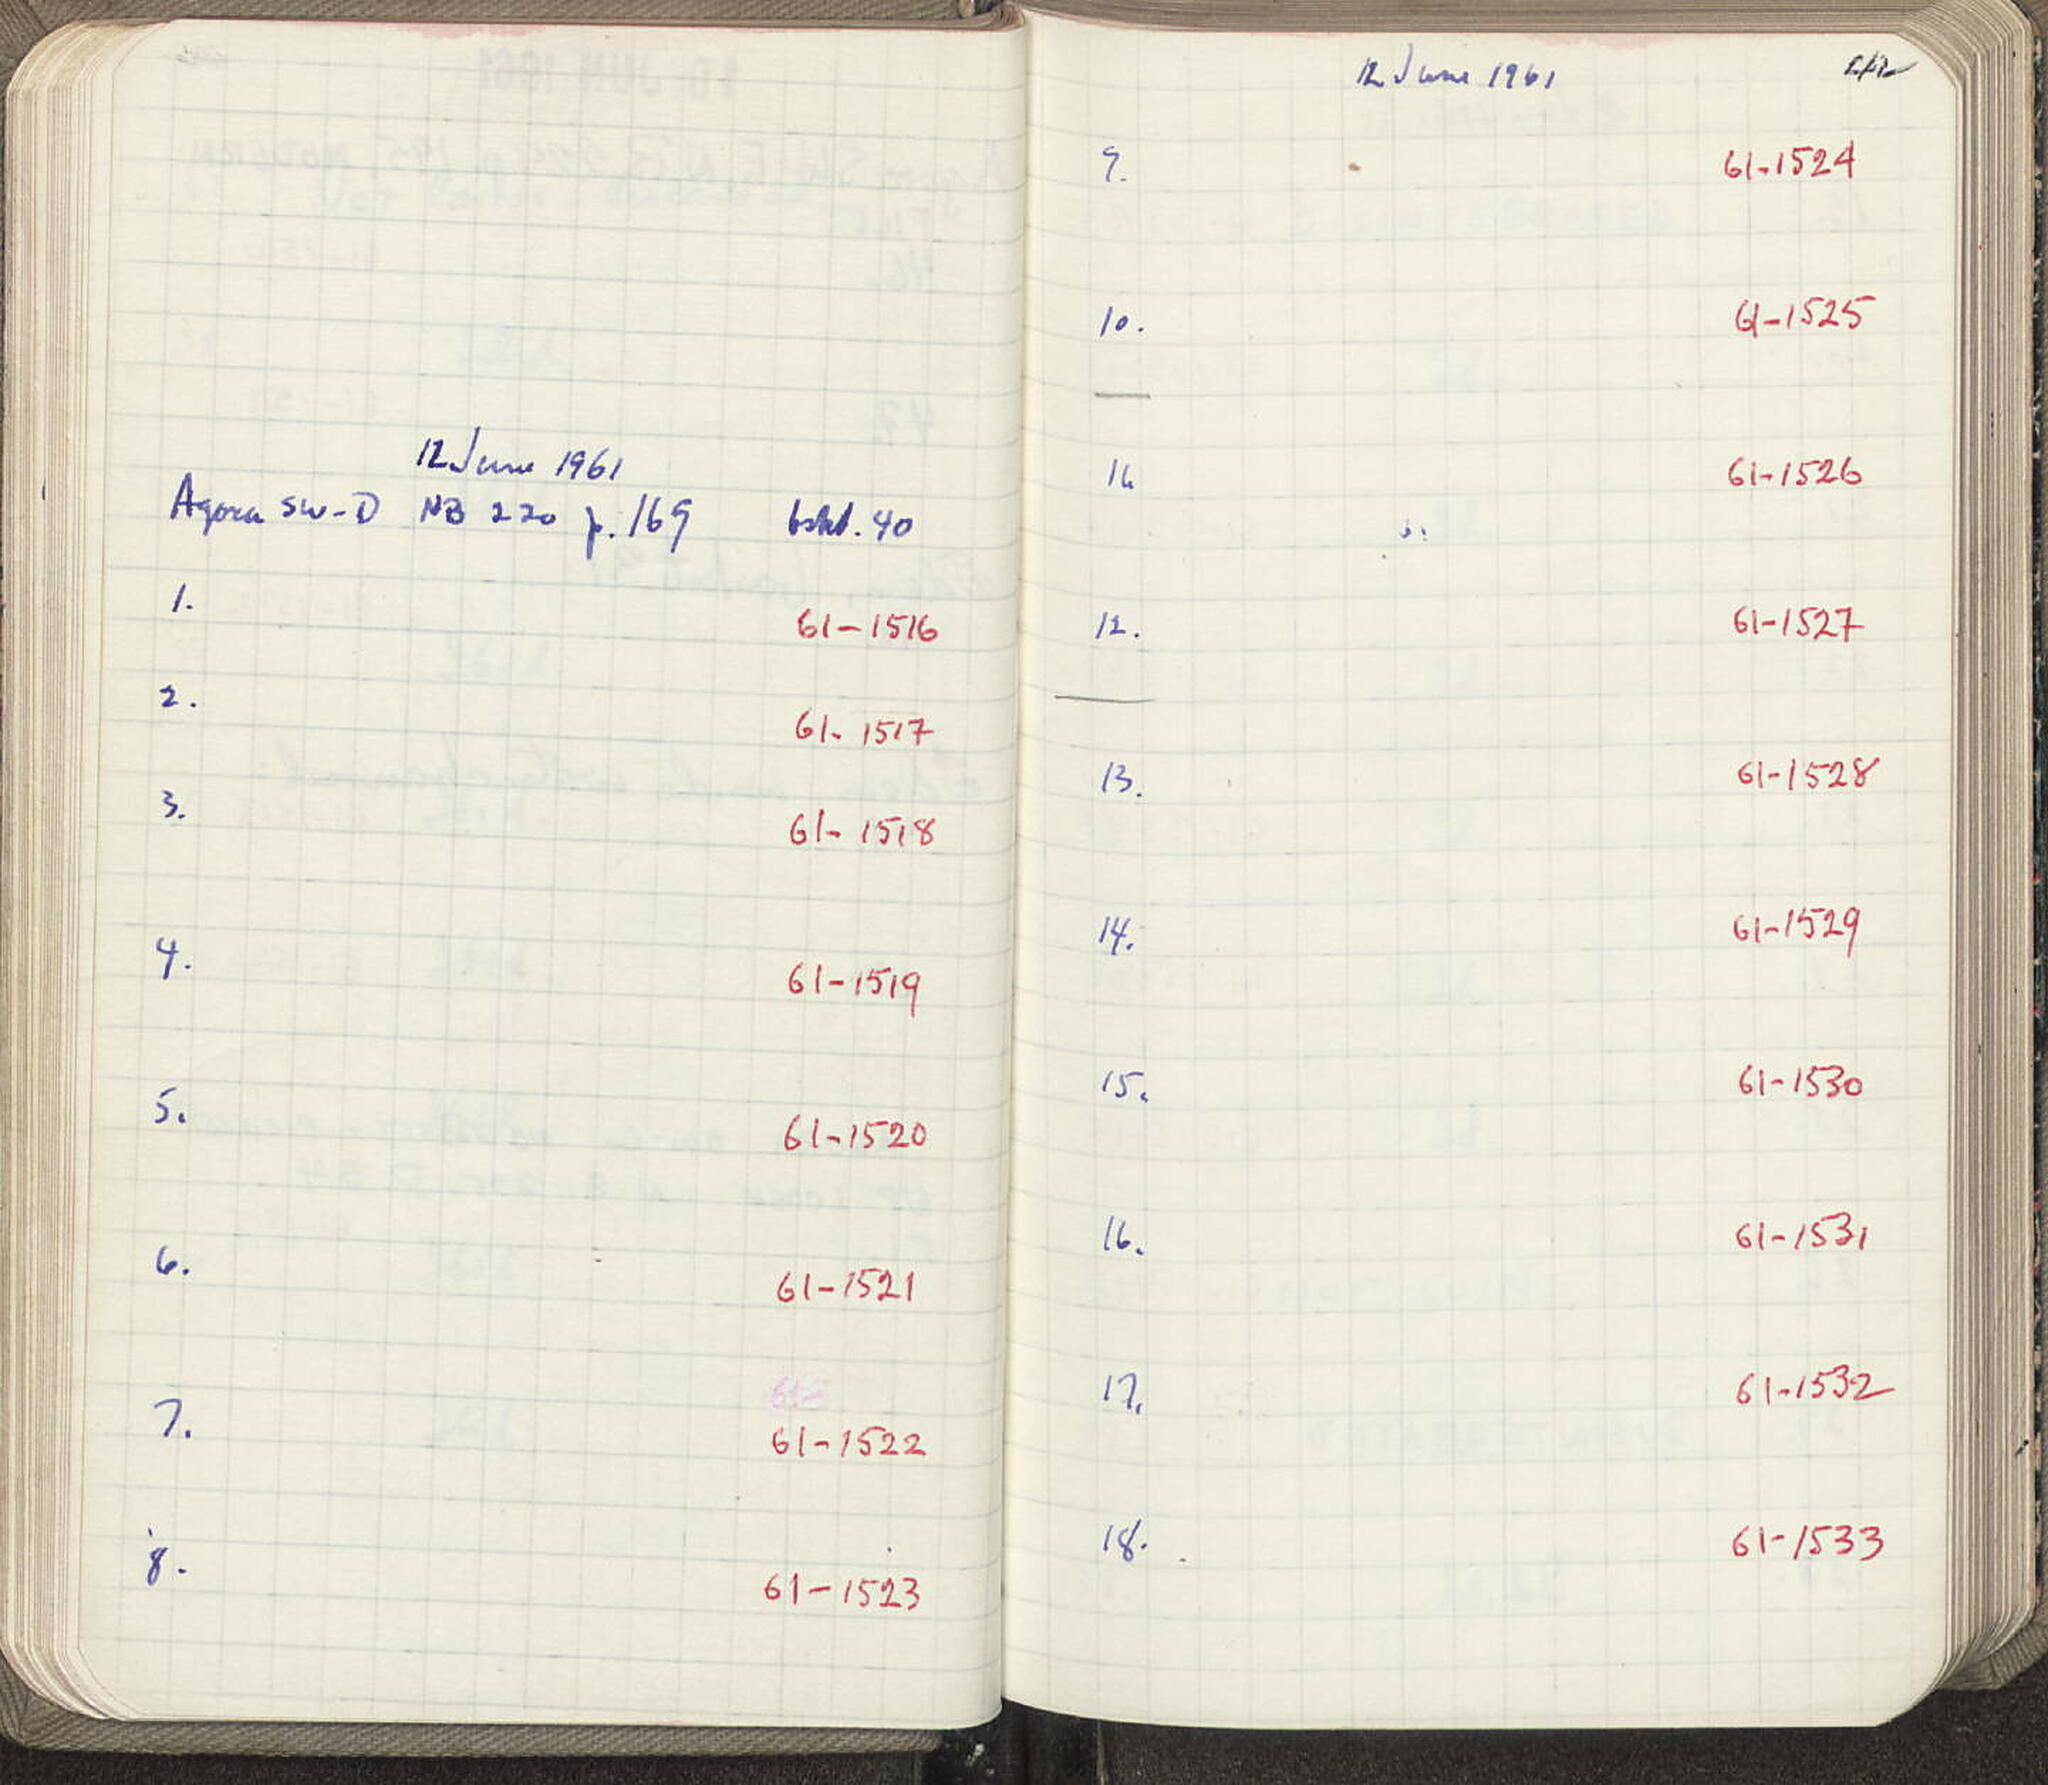 12 June 1961
Agora SW-D NB 220 p. 169 bskt. 40
1. 61-1516
2. 61-1517
3. 61-1518
4. 61-1519
5. 61-1520
6. 61-1521
7. 61-1522
8. 61-1523
12 June 1961
9. 61-1524
10. 61-1525
11. 61-1526
12. 61-1527
13. 61-1528
14. 61-1529
15. 61-1530
16. 61-1531
17. 61-1532
18. 61-1533